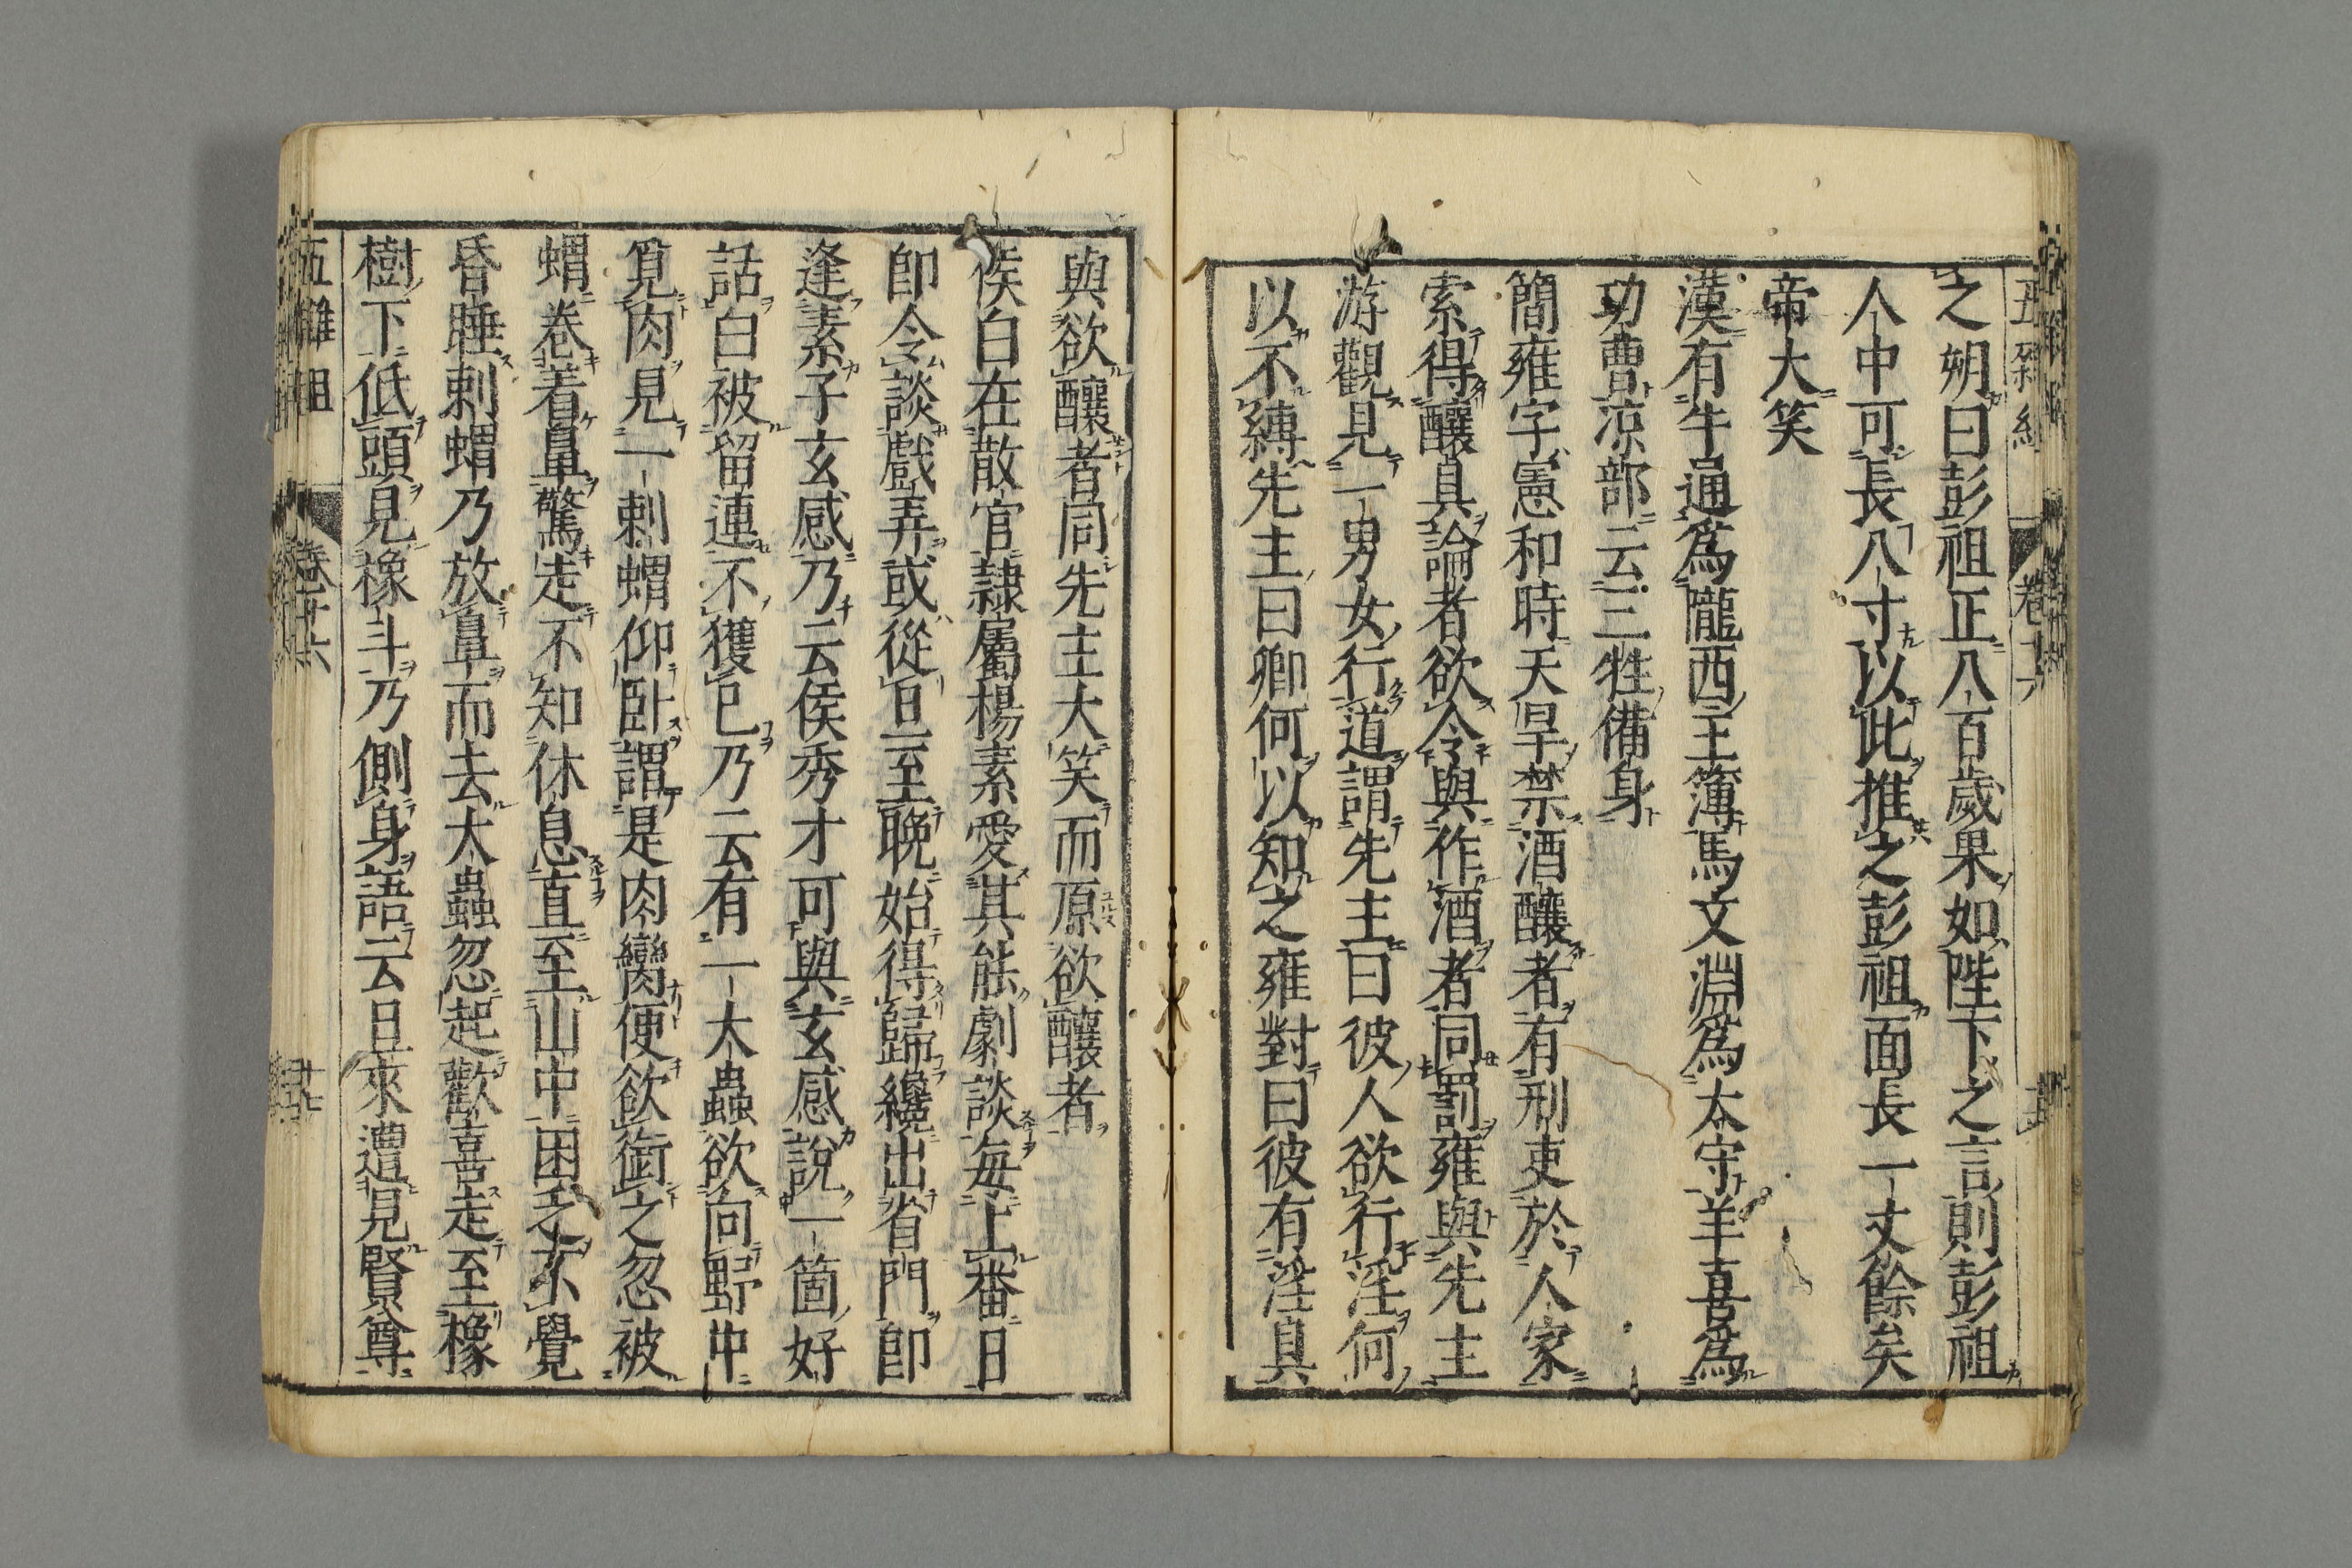 之朔曰彭祖正八百歲果如陛下之言則彭祖
人中可長八寸以此推之彭祖面長一丈餘矣
帝大笑
漢有牛通爲隴西主簿馬文淵爲太守羊喜爲
功曹凉部云三牲備身
簡雍字憲和時天旱禁酒釀者有刑吏於人家
索得釀具論者欲令與作酒者同罰雍與先主
游觀見一男女行道謂先主曰彼人欲行淫何
以不縛先主曰卿何以知之雍對曰彼有淫具
與欲釀者同先主大笑而原欲釀者
侯白在散官隷屬楊素愛其能劇談每上番日
卽令談戲弄或從旦至晚始得歸纔出省門卽
逢素子玄感乃云侯秀才可與玄感說一箇好
話白被留連不獲已乃云有一大蟲欲向野中
覓肉見一刺蝟仰臥謂是肉臠便欲銜之忽被
蝟卷着鼻驚走不知休息直至山中困乏不覺
昏睡刺蝟乃放鼻而去大蟲忽起歡喜走至橡
樹下低頭見橡斗乃側身語云旦來遭見賢尊
五雜組
卷十六